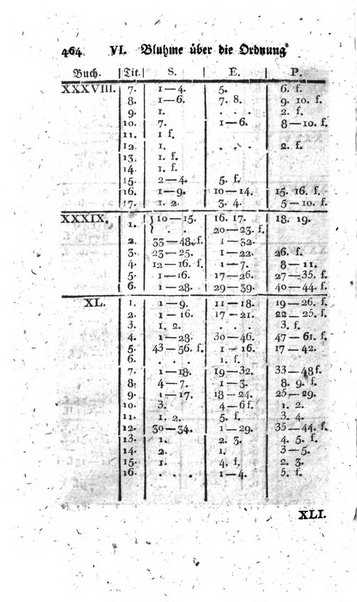 464 VI. Bluhme über die Ordnung
Buch. Tit. S. E. P.
XXXVIII. 7. 1—4. 5. 6. f.
8. 1—6. 7. 8. 9. 10. f.
9. 1. . . . 2. f.
10. 7. 1—6. 8—10. f.
11. 1 f. . . .
12. . . . . . . 2. f.
13. 1. f.
14. 1. f.
15. 2—4. 5. f.
16. 1—9. 10—14. 15. 16. f.
17. 1. 2. 3. 4. 5—10. f.
XXXIX. 1. 10—15. 16. 17. 18. 19.
. . . 20—23. f.
2. 33—48. f. 1—32.
3. 23—25. 1—22. 26. f.
4. 12—16. f. 1—7. 8—11.
5. 1—16. 17—26. 27—35. f.
6. 1—28. 29—39. 40—44. f.
XL. 1. 1—9. 11—18. 19—26. f.
2. 1—16. 17—21. 22—25. f.
3. 1. 2. . . . . . .
4. 1—28. 30—46. 47—61. f.
5. 43—56. f. 1—16. 17—42.
6. . . . 1. f.
7. 1—18. 19—32. 33—48 f.
8. 4—7. 1—3. 8. 9. f.
9. 1—17. 18—24. 25—29.
10. 3. 4—6 f. 1. 2.
11. 1. 2. 5. f. 3. 4.
12. 30—34. 1—29. 35—44. f.
13. 1. 2. 3. 4. 5. f.
14. 2. 1. 3—5.
15. 1. 4. f. 2. 3.
16. . . . 1—4. 5. f.
XLI.